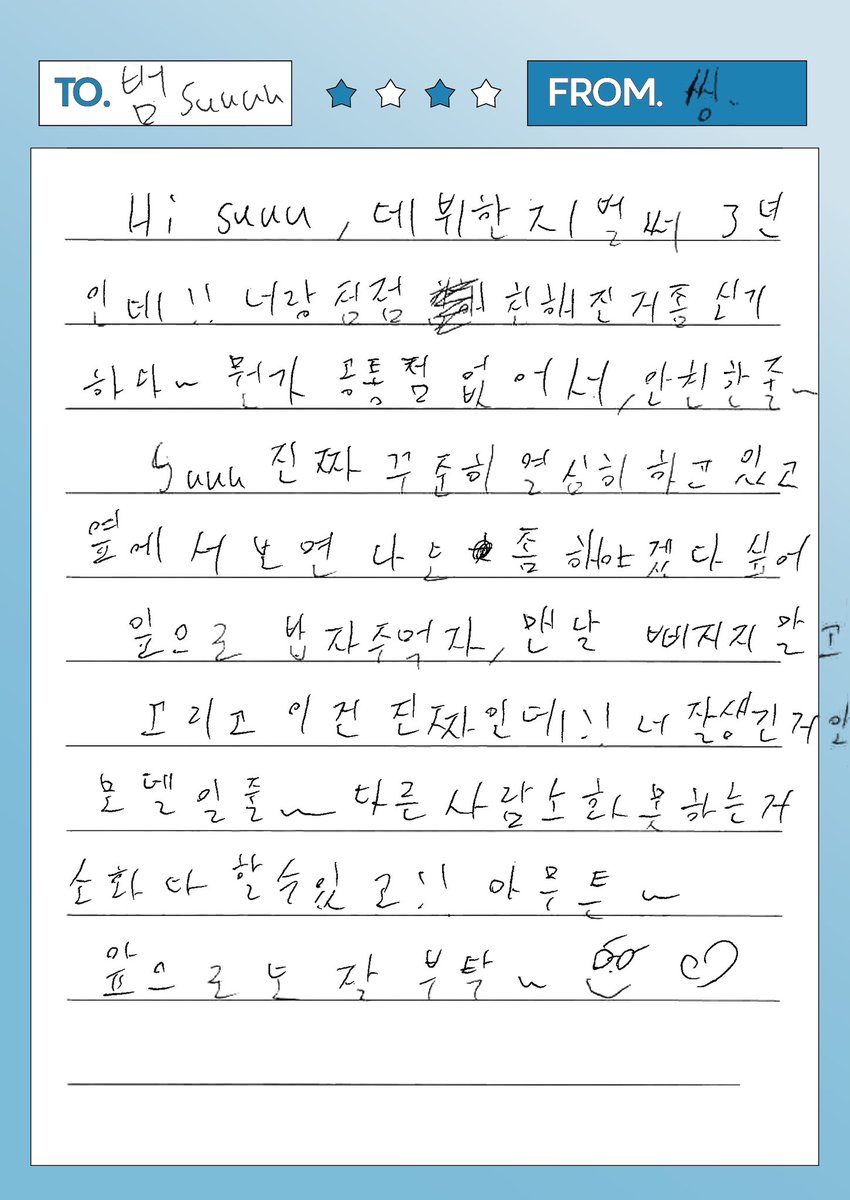 TO. 범 suuuu
FROM. 씽.
Hi suuu, 데뷔한지 벌써 3년
인데!! 너랑 점점 친해진거좀 신기
하다~ 뭔가 공통점 없어서, 안친한줄~
Suuu 진짜 꾸준히 열심히 하고 있고
옆에서 보면 나도 좀 해야겠다 싶어
앞으로 밥자주먹자, 맨날 삐지지 말고
그리고 이건 진짜인데!! 너 잘생긴거 안
모델일줄~ 다른 사람 소화 못하는거
소화 다 할수있고!! 아무튼~
앞으로도 잘 부탁~